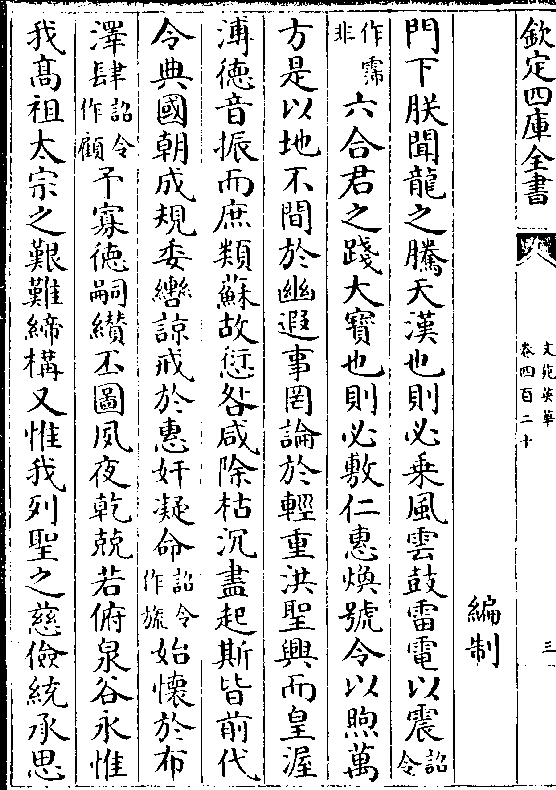 欽定四庫全書
文苑英華
卷四百二十
三
編制
門下朕聞龍之騰天漢也則必乗風雲鼓雷電以震詔令
作霈非六合君之踐大寳也則必敷仁惠煥號令以煦萬
方是以地不間於幽遐事罔論於輕重洪聖興而皇渥
溥徳音振而庶類蘇故愆咎咸除枯沉盡起斯皆前代
令典國朝成規委轡諒戒於惠奸凝命詔令作旒始懷於布
澤肆詔令作顧予寡徳嗣纉丕圖夙夜乾兢若俯泉谷永惟
我髙祖太宗之艱難締構又惟我列聖之慈儉統承思